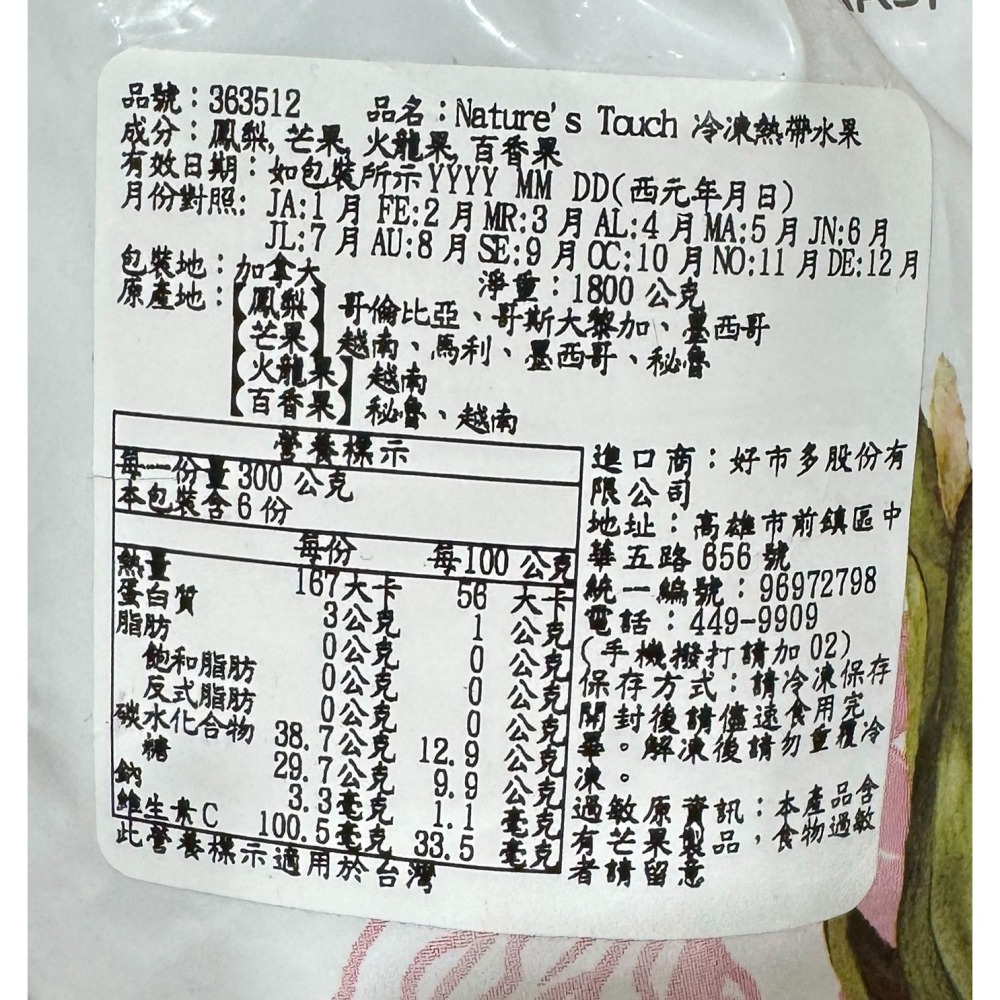 品號：363512 品名：Nature's Touch 冷凍熱帶水果
成分：鳳梨, 芒果, 火龍果, 百香果
有效日期：如包裝所示YYYY MM DD(西元年月日)
月份對照: JA:1月 FE:2月 MR:3月 AL:4月 MA:5月 JN:6月
JL:7月 AU:8月 SE:9月 OC:10月 NO:11月 DE:12月
包裝地：加拿大 淨重：1800公克
原產地：【鳳梨】哥倫比亞、哥斯大黎加、墨西哥
【芒果】越南、馬利、墨西哥、秘魯
【火龍果】越南
【百香果】秘魯、越南
營養標示
每一份量300公克
本包裝含6份
每份 每100公克
熱量 167大卡 56 大卡
蛋白質 3公克 1 公克
脂肪 0公克 0 公克
飽和脂肪 0公克 0 公克
反式脂肪 0公克 0 公克
碳水化合物 38.7公克 12.9 公克
糖 29.7公克 9.9 公克
鈉 3.3毫克 1.1 毫克
維生素C 100.5毫克 33.5 毫克
此營養標示適用於台灣
進口商：好市多股份有
限公司
地址：高雄市前鎮區中
華五路656號
統一編號：96972798
電話：449-9909
(手機撥打請加02)
保存方式：請冷凍保存
開封後請儘速食用完
畢。解凍後請勿重覆冷
凍。
過敏原資訊：本產品含
有芒果製品，食物過敏
者請留意